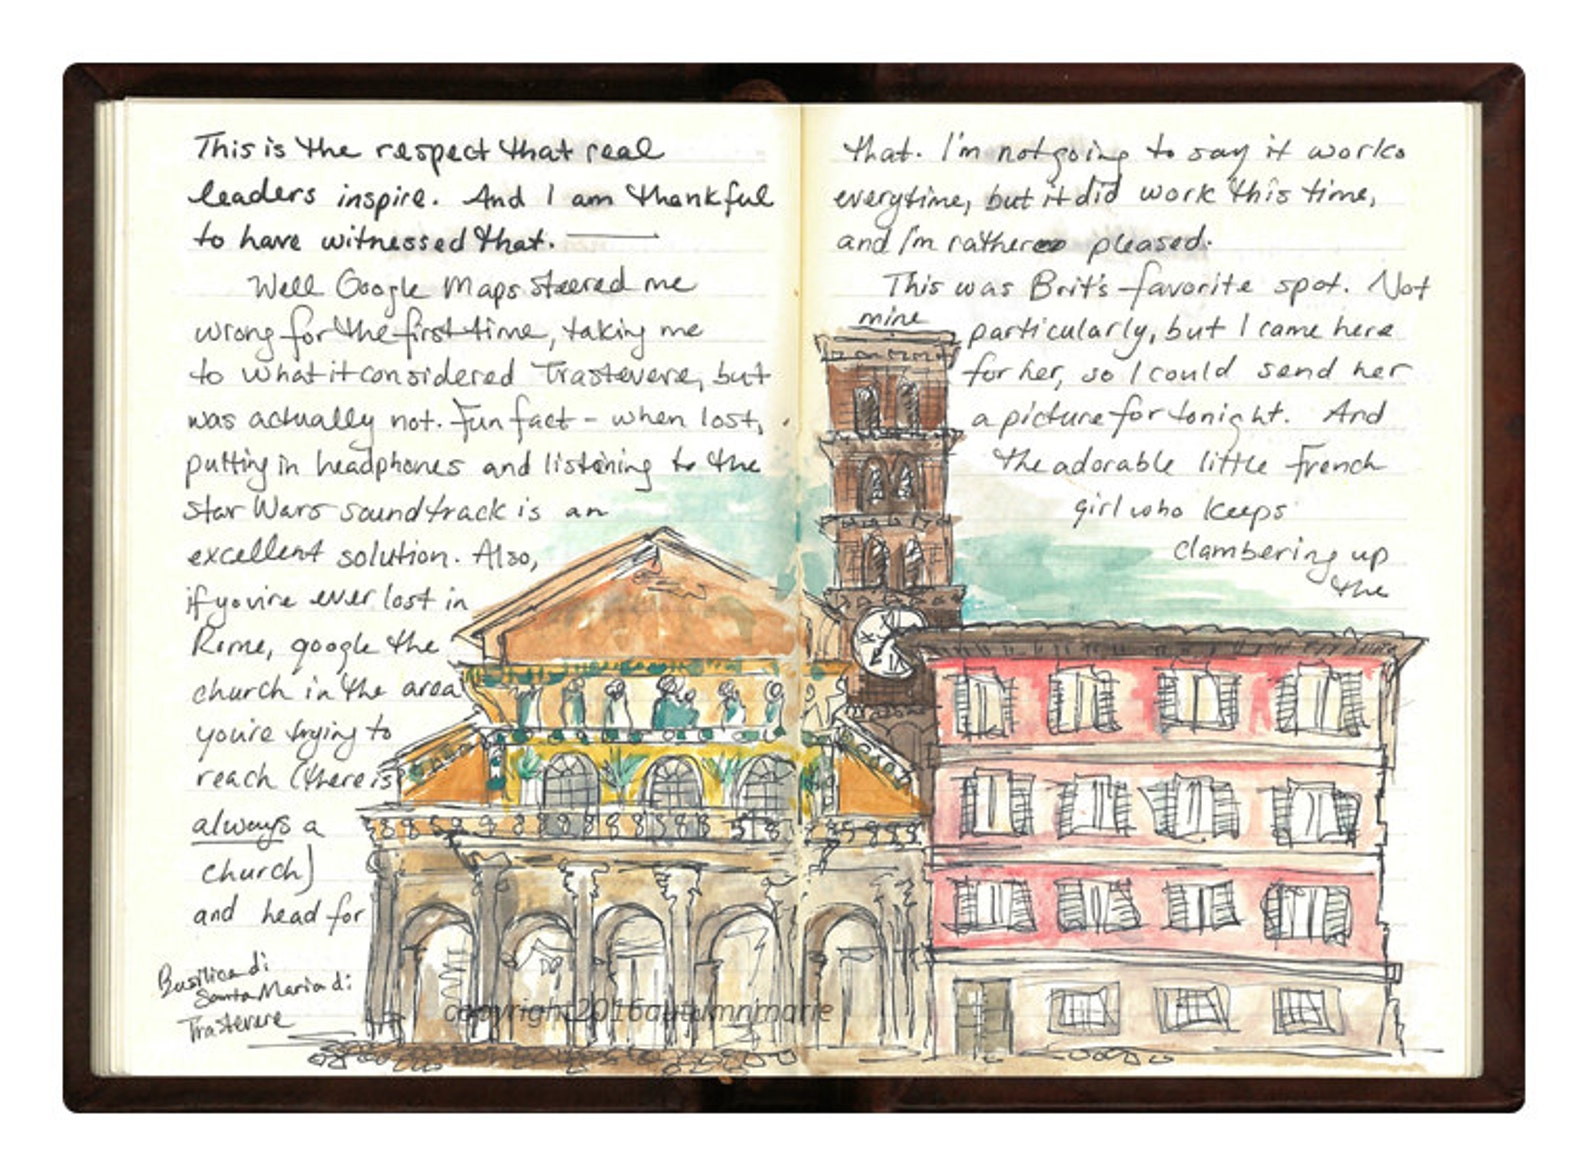 This is the respect that real
leaders inspire. And I am thankful
to have witnessed that. ——
Well Google Maps steered me
wrong for the first time, taking me
to what it considered Trastevere, but
was actually not. Fun fact - when lost,
putting in headphones and listening to the
Star Wars soundtrack is an
excellent solution. Also,
if you're ever lost in
Rome, google the
church in the area
you're trying to
reach (there is
always a
church)
and head for
Basilica di
Santa Maria di
Trastevere
that. I'm not going to say it works
everytime, but it did work this time,
and I'm rather pleased.
This was Brit's favorite spot. Not
mine particularly, but I came here
for her, so I could send her
a picture for tonight. And
the adorable little French
girl who keeps
clambering up
the
copyright2016autumnmarie